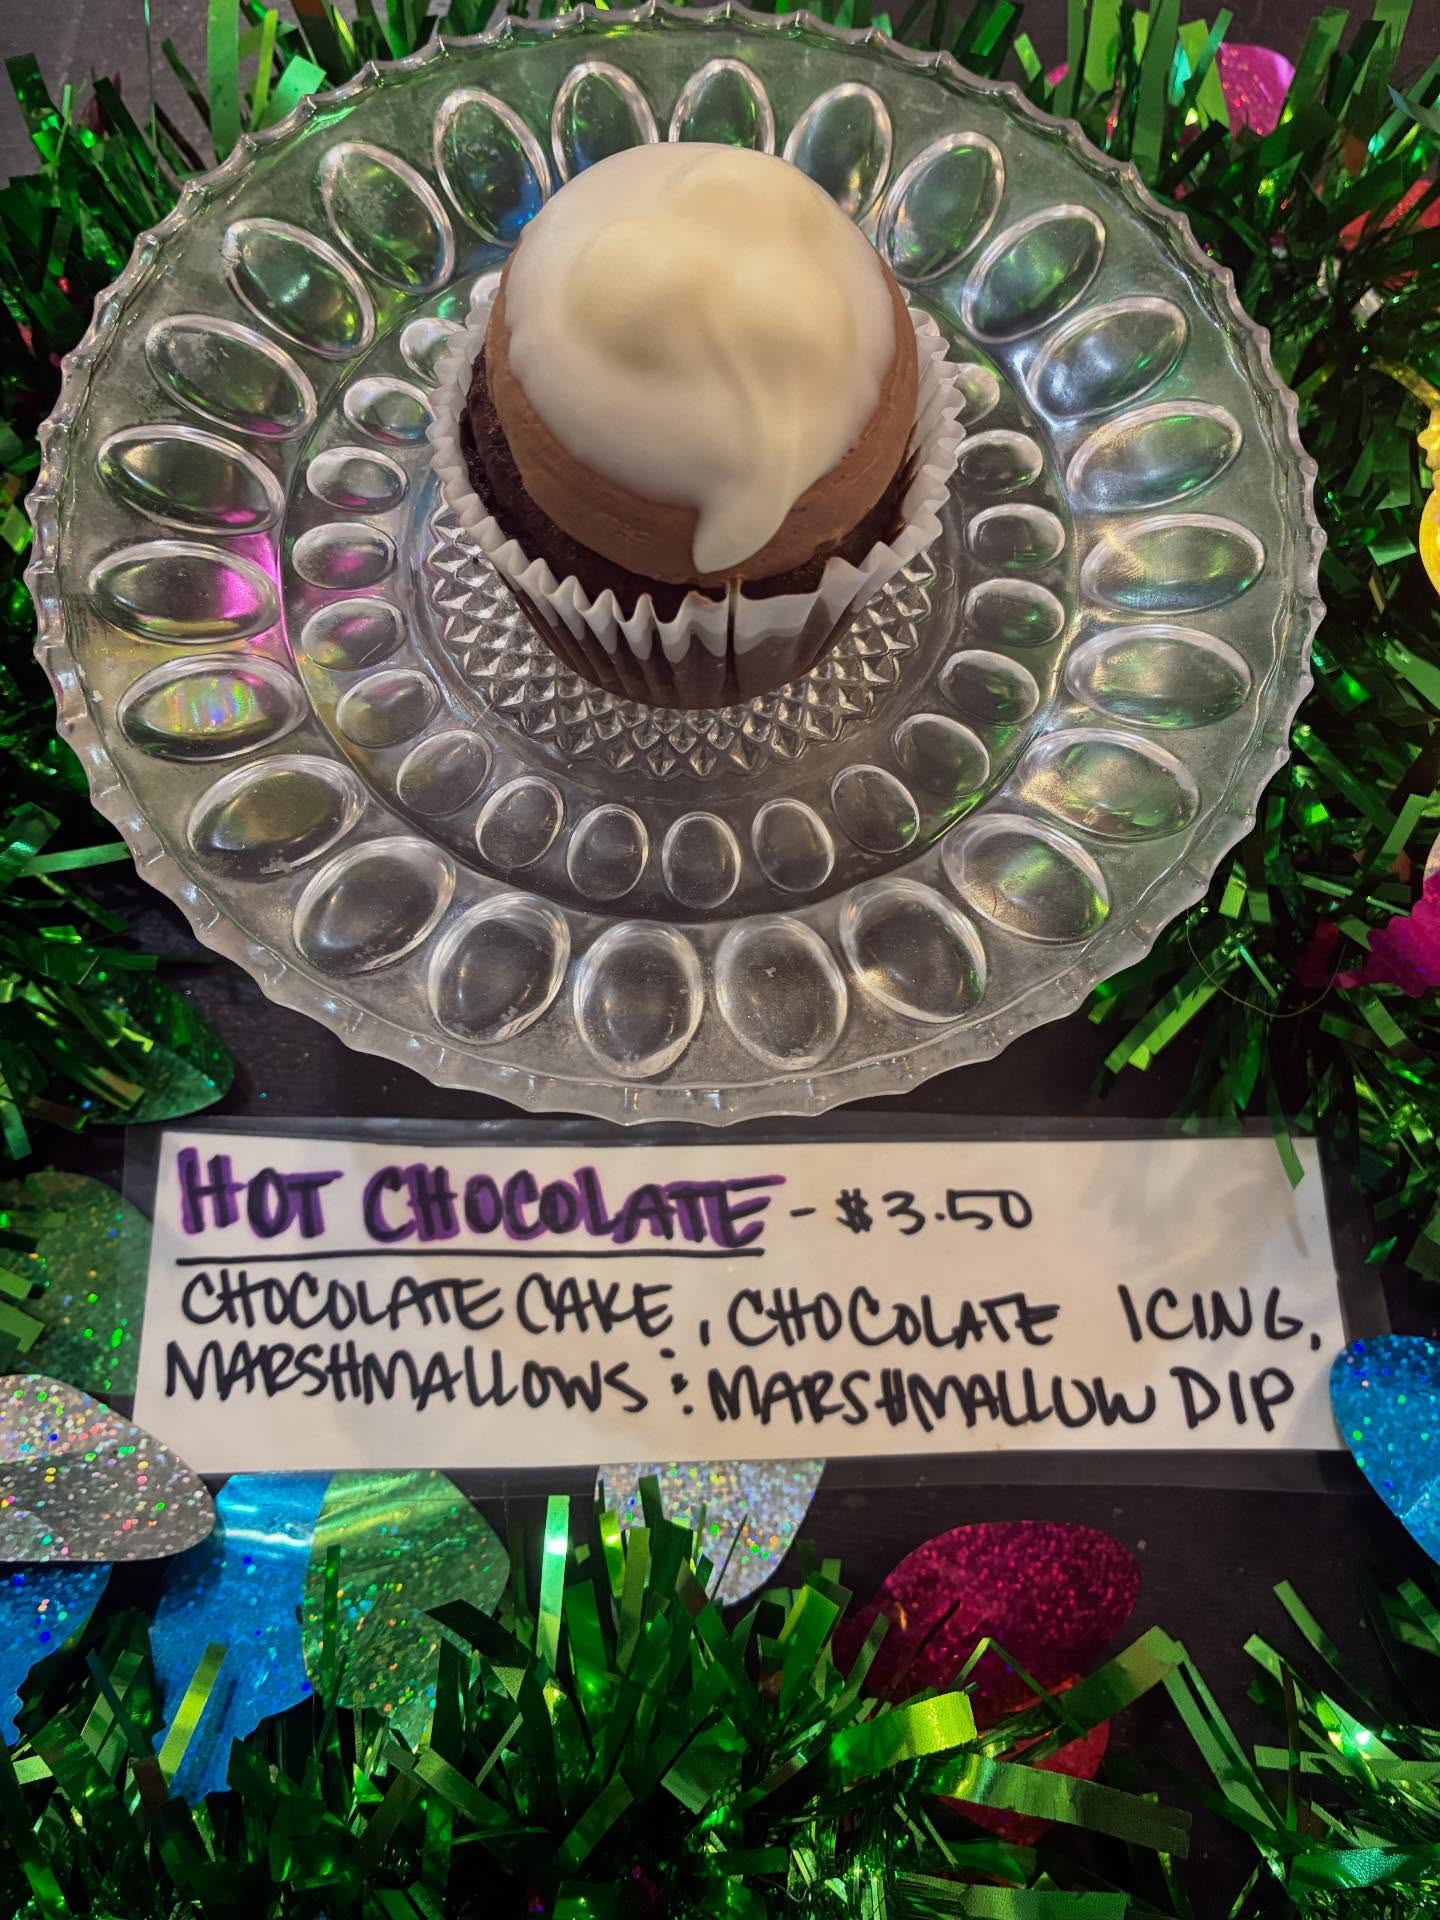 HOT CHOCOLATE - $3.50
CHOCOLATE CAKE, CHOCOLATE ICING,
MARSHMALLOWS : MARSHMALLOW DIP